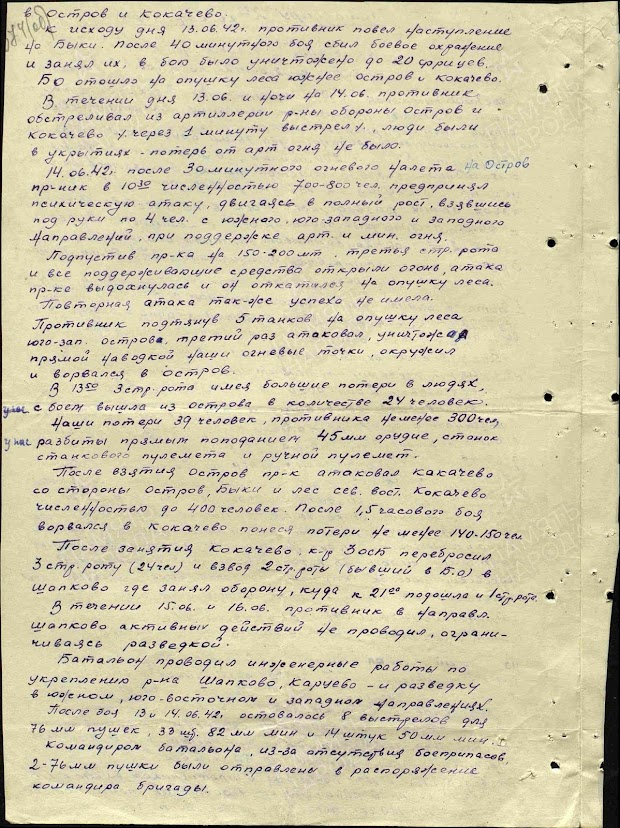 в Остров и Кокачево.
К исходу дня 13.06.42г. противник повел наступление
на Быки. После 40 минутного боя сбил боевое охранение
и занял их, в бою было уничтожено до 20 фрицев.
БО отошло на опушку леса южнее остров и Кокачево.
В течении дня 13.06. и ночи на 14.06. противник
обстреливал из артиллерии р-ны обороны Остров и
Кокачево /через 1 минуту выстрел/, люди были
в укрытиях - потерь от арт огня не было.
14.06.42г. после 30 минутного огневого налета на Остров
пр-ник в 10³⁰ численностью 700-800 чел. предпринял
психическую атаку, двигаясь в полный рост, взявшись
под руки по 4 чел. с южного, юго-западного и западного
направлений, при поддержке арт. и мин. огня.
Подпустив пр-ка на 150-200мт. третья стр. рота
и все поддерживающие средства открыли огонь, атака
пр-ка выдохнулась и он откатился на опушку леса.
Повторная атака так-же успеха не имела.
Противник подтянув 5 танков на опушку леса
юго-зап. острова, третий раз атаковал, уничтожая
прямой наводкой наши огневые точки, окружил
и ворвался в остров.
В 13⁵⁰ 3 стр. рота имея большие потери в людях,
с боем вышла из острова в количестве 24 человек.
Наши потери 39 человек, противника не менее 300 чел,
у нас разбиты прямым поподанием 45мм орудие, станок
станкового пулемета и ручной пулемет.
После взятия Остров пр-к атаковал Какачево
со стороны Остров, Быки и лес сев. вост. Кокачево
численностью до 400 человек. После 1,5 часового боя
ворвался в Кокачево понеся потери не менее 140-150 чел.
После занятия Кокачево к-р 3 осб перебросил
3 стр. роту (24 чел) и взвод 2 стр. роты (бывший в Б.О) в
Шапково где занял оборону, куда к 21⁰⁰ подошла и 1 стр. рота.
В течении 15.06. и 16.06. противник в направл.
Шапково активных действий не проводил, ограни-
чиваясь разведкой.
Батальон проводил инженерные работы по
укреплению р-на Шапково, Карцево - и разведку
в южном, юго-восточном и западном направлениях.
После боя 13 и 14.06.42г. оставалось 8 выстрелов для
76мм пушек, 33 шт. 82 мм мин и 14 штук 50мм мин.
Командиром батальона, из-за отсутствия боеприпасов,
2-76мм пушки были отправлены в распоряжение
командира бригады.